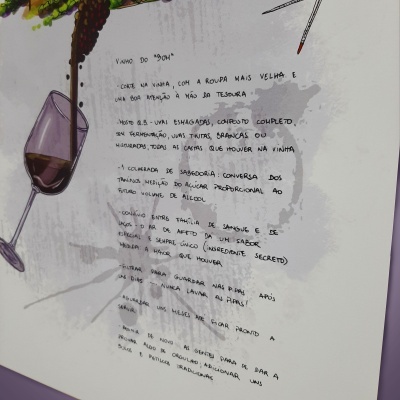 VINHO DO "BOM"
- CORTE NA VINHA, COM A ROUPA MAIS VELHA E
UMA BOA ATENÇÃO À MÃO DA TESOURA
- MOSTO Q.B - UVAS ESMAGADAS, COMPOSTO COMPLETO,
SEM FERMENTAÇÃO, UVAS TINTAS, BRANCAS OU
MISTURADAS, TODAS AS CASTAS QUE HOUVER NA VINHA
- 1 COLHERADA DE SABEDORIA: CONVERSA DOS
TANINOS MEDIÇÃO DO AÇÚCAR PROPORCIONAL AO
FUTURO VOLUME DE ÁLCOOL
- CONVÍVIO ENTRE FAMÍLIA DE SANGUE E DE
O AR DE AFETO DÁ UM SABOR
ESPECIAL E SEMPRE ÚNICO (INGREDIENTE SECRETO)
MEXER A MAIOR QUE HOUVER
- FILTRAR PARA GUARDAR NAS PIPAS APÓS
UNS DIAS - NUNCA LAVAR AS PIPAS!
- AGUARDAR UNS MESES ATÉ FICAR PRONTO A
SERVIR
- DE NOVO AS GENTES PARA SE DAR A
PROVAR ALGO DE ORGULHO; ADICIONAR UNS
E PETISCOS TRADICIONAIS